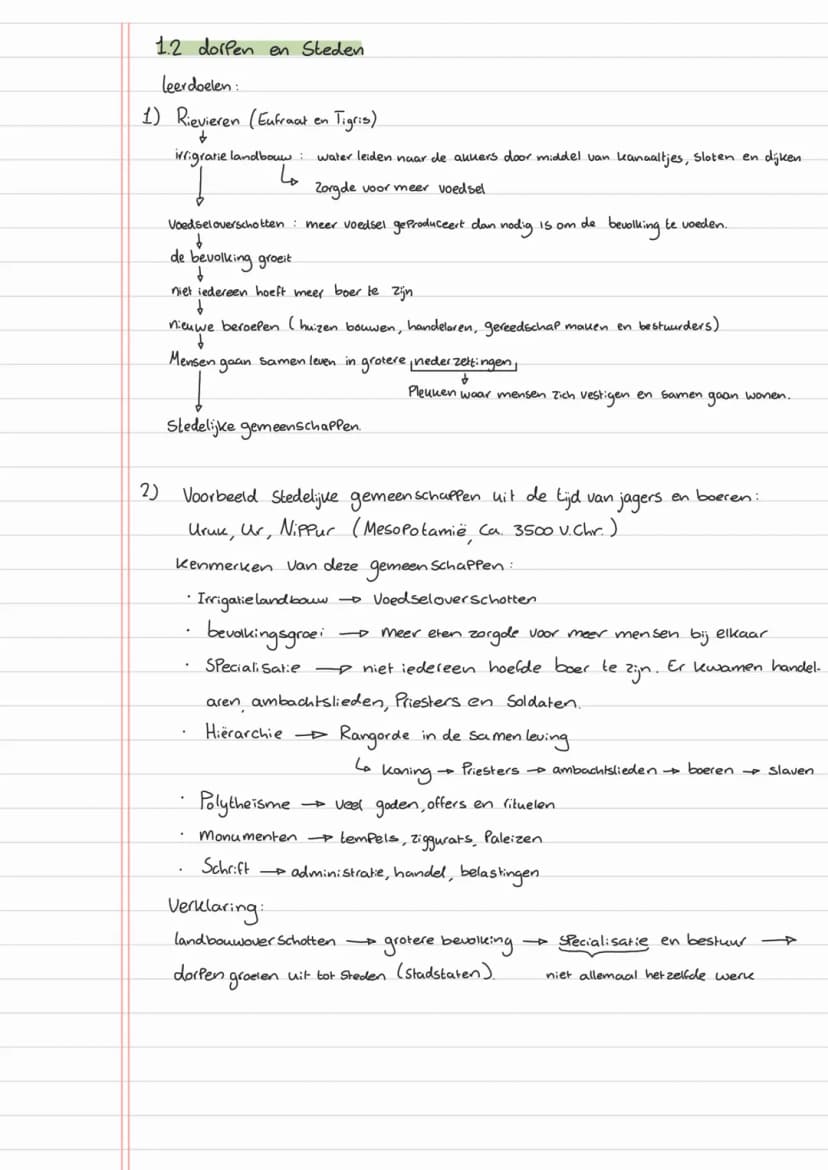 1.2 dorpen en Steden
leerdoelen:
1) Rievieren (Eufraat en Tigris)
↓
irrigratie landbouw : water leiden naar de akkers door middel van kanaaltjes, sloten en dijken
↳ Zorgde voor meer voedsel
↓
Voedseloverschotten : meer voedsel geproduceert dan nodig is om de bevolking te voeden.
↓
de bevolking groeit
↓
niet iedereen hoeft meer boer te zijn
↓
nieuwe beroepen (huizen bouwen, handelaren, gereedschap maken en bestuurders)
↓
Mensen gaan samen leven in grotere nederzettingen
↓
Plekken waar mensen zich vestigen en samen gaan wonen.
↓
Stedelijke gemeenschappen.
2) Voorbeeld Stedelijke gemeenschappen uit de tijd van jagers en boeren:
Uruk, Ur, Nippur (Mesopotamië, Ca. 3500 v.Chr.)
kenmerken van deze gemeenschappen:
· Irrigatielandbouw → Voedseloverschotten
· bevolkingsgroei → meer eten zorgde voor meer mensen bij elkaar
· Specialisatie → niet iedereen hoefde boer te zijn. Er kwamen handel-
aren, ambachtslieden, Priesters en Soldaten.
· Hiërarchie → Rangorde in de samenleving
↳ koning → Priesters → ambachtslieden → boeren → slaven
· Polytheïsme → veel goden, offers en rituelen
· Monumenten → tempels, ziggurats, Paleizen
· Schrift → administratie, handel, belastingen
Verklaring:
landbouwoverschotten → grotere bevolking → specialisatie en bestuur →
dorpen groeien uit tot steden (stadstaten). niet allemaal hetzelfde werk